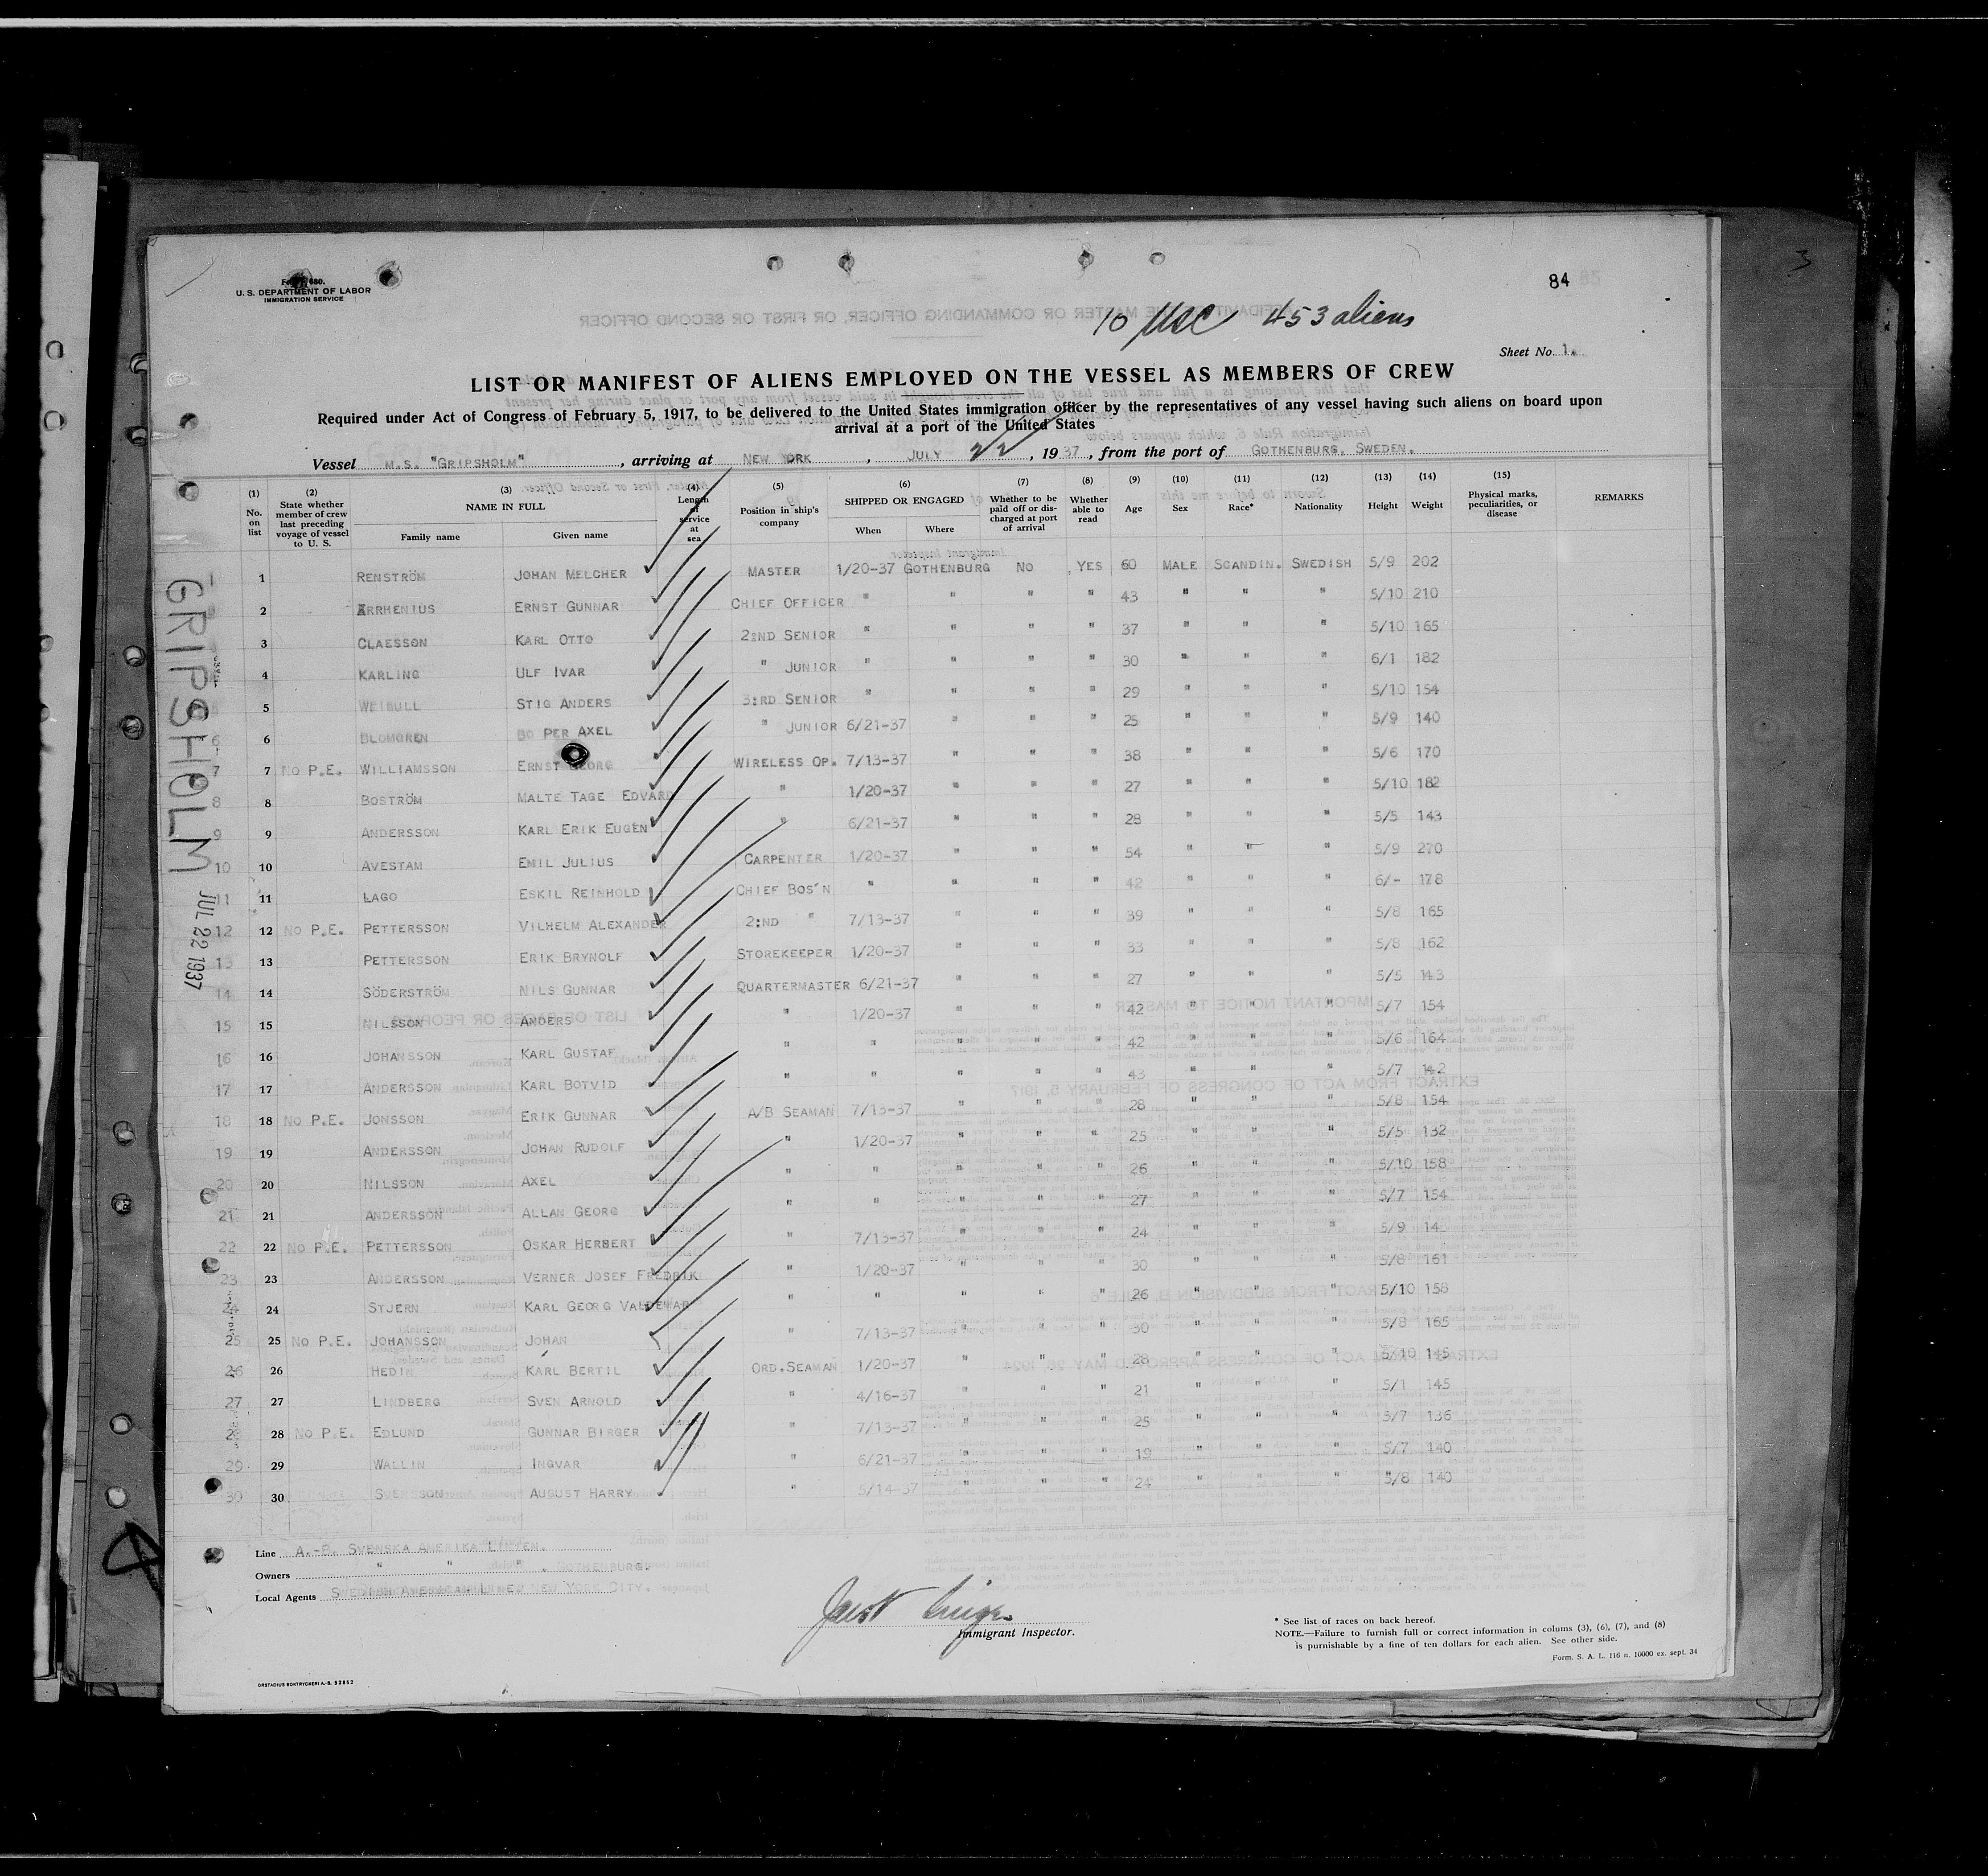 84
Form 680.
U. S. DEPARTMENT OF LABOR
IMMIGRATION SERVICE
10 USC 453 aliens
Sheet No. 1.
LIST OR MANIFEST OF ALIENS EMPLOYED ON THE VESSEL AS MEMBERS OF CREW
Required under Act of Congress of February 5, 1917, to be delivered to the United States immigration officer by the representatives of any vessel having such aliens on board upon
arrival at a port of the United States
Vessel M.S. "GRIPSHOLM", arriving at NEW YORK, JULY 22, 1937, from the port of GOTHENBURG, SWEDEN.
(1) No. on list (2) State whether member of crew last preceding voyage of vessel to U. S. (3) NAME IN FULL Family name Given name (4) Length of service at sea (5) Position in ship's company (6) SHIPPED OR ENGAGED When Where (7) Whether to be paid off or discharged at port of arrival (8) Whether able to read (9) Age (10) Sex (11) Race* (12) Nationality (13) Height (14) Weight (15) Physical marks, peculiarities, or disease REMARKS
1 RENSTRÖM JOHAN MELCHER MASTER 1/20-37 GOTHENBURG NO YES 60 MALE SCANDIN. SWEDISH 5/9 202
2 ARRHENIUS ERNST GUNNAR CHIEF OFFICER " " " " 43 " " " 5/10 210
3 CLAESSON KARL OTTO 2:ND SENIOR " " " " 37 " " " 5/10 165
4 KARLING ULF IVAR " JUNIOR " " " " 30 " " " 6/1 182
5 WEIBULL STIG ANDERS 3:RD SENIOR " " " " 29 " " " 5/10 154
6 BLOMGREN BO PER AXEL " JUNIOR 6/21-37 " " " 25 " " " 5/9 140
7 NO P.E. WILLIAMSSON ERNST GEORG WIRELESS OP. 7/13-37 " " " 38 " " " 5/6 170
8 BOSTRÖM MALTE TAGE EDVARD " 1/20-37 " " " 27 " " " 5/10 182
9 ANDERSSON KARL ERIK EUGEN " 6/21-37 " " " 28 " " " 5/5 143
10 AVESTAM EMIL JULIUS CARPENTER 1/20-37 " " " 54 " " " 5/9 270
11 LAGO ESKIL REINHOLD CHIEF BOS'N " " " " 42 " " " 6/- 178
12 NO P.E. PETTERSSON VILHELM ALEXANDER 2:ND " 7/13-37 " " " 39 " " " 5/8 165
13 PETTERSSON ERIK BRYNOLF STOREKEEPER 1/20-37 " " " 33 " " " 5/8 162
14 SÖDERSTRÖM NILS GUNNAR QUARTERMASTER 6/21-37 " " " 27 " " " 5/5 143
15 NILSSON ANDERS " 1/20-37 " " " 42 " " " 5/7 154
16 JOHANSSON KARL GUSTAF " " " " " 42 " " " 5/6 164
17 ANDERSSON KARL BOTVID " " " " " 43 " " " 5/7 142
18 NO P.E. JONSSON ERIK GUNNAR A/B SEAMAN 7/13-37 " " " 28 " " " 5/8 154
19 ANDERSSON JOHAN RUDOLF " 1/20-37 " " " 25 " " " 5/5 132
20 NILSSON AXEL " " " " " 26 " " " 5/10 158
21 ANDERSSON ALLAN GEORG " " " " " 27 " " " 5/7 154
22 NO P.E. PETTERSSON OSKAR HERBERT " 7/13-37 " " " 24 " " " 5/9
23 ANDERSSON VERNER JOSEF FREDRIK " 1/20-37 " " " 30 " " " 5/8 161
24 STJERN KARL GEORG VALDEMAR " " " " " 26 " " " 5/10 158
25 NO P.E. JOHANSSON JOHAN " 7/13-37 " " " 30 " " " 5/8 165
26 HEDIN KARL BERTIL ORD.SEAMAN 1/20-37 " " " 28 " " " 5/10 145
27 LINDBERG SVEN ARNOLD " 4/16-37 " " " 21 " " " 5/1 145
28 NO P.E. EDLUND GUNNAR BIRGER " 7/13-37 " " " 25 " " " 5/7 136
29 WALLIN INGVAR " 6/21-37 " " " 19 " " " 5/7 140
30 SVENSSON AUGUST HARRY " 5/14-37 " " " 24 " " " 5/8 140
GRIPSHOLM
JUL 22 1937
Line A.-B. SVENSKA AMERIKA LINIEN.
Owners " " " , GOTHENBURG.
Local Agents SWEDISH AMERICAN LINE, NEW YORK CITY.
Immigrant Inspector.
* See list of races on back hereof.
NOTE.—Failure to furnish full or correct information in colums (3), (6), (7), and (8)
is purnishable by a fine of ten dollars for each alien. See other side.
Form. S. A. L. 116 n. 10000 ex. sept. 34
ORSTADIUS BOKTRYCKERI A.-B. 52852